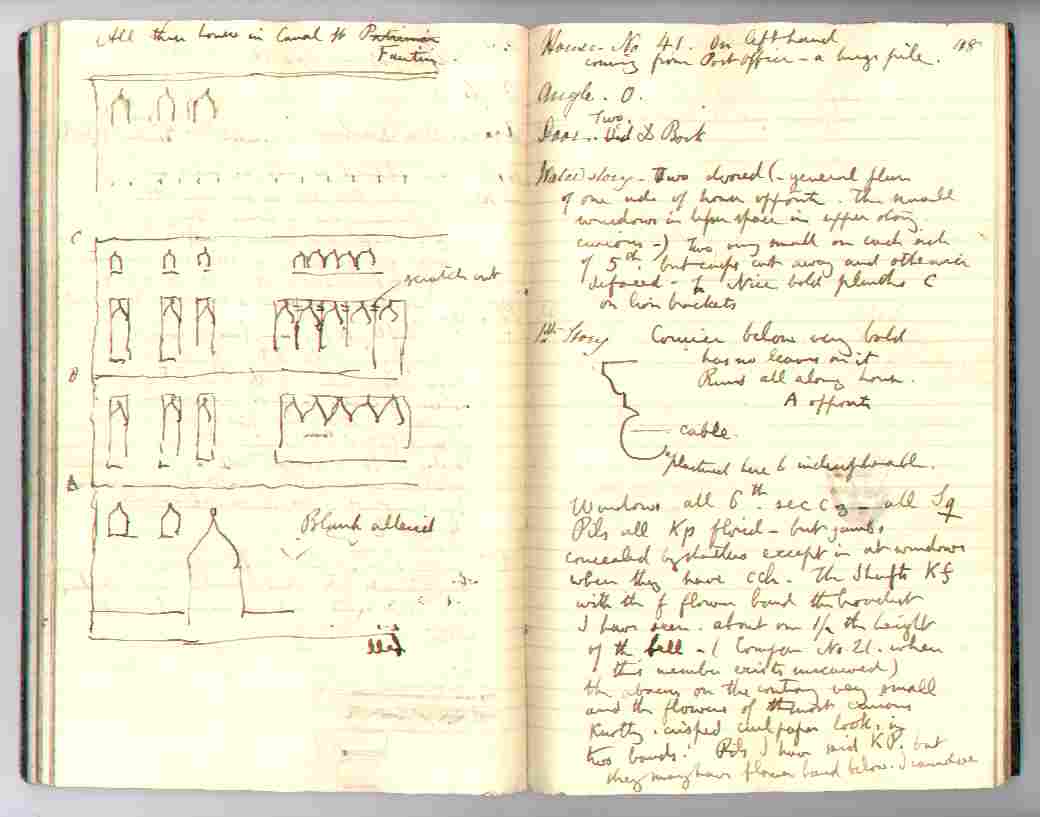 All three houses in Canal St Patrician
Faustin.
C
scratch out
B
A
Blank altered
bell
House - No 41. On left hand
coming from Post office - a huge pile.
118
Angle. O.
Two
Door. & Bock
Water story - Two doored (- general plan
of one side of house opposite. The small
windows in upper space in upper story
curious -) Two very small on each side
of 5th. but cusps cut away and otherwise
defaced - Nice bold plinths C
on lion brackets
1st Story Cornice below very bold
has no leaves on it
Runs all along house.
A opposite
cable.
plastered here & indecipherable.
Windows all 6th. sec c 3 - all Sq
Pils all Kp florid - but jambs
concealed by shutters except in at windows
where they have cch. The Shafts Kf
with the f flower band the broadest
I have seen. about one 1/2 the height
of the bell - (Compare No 21. where
this member exists uncarved)
the abacus on the contrary very small
and the flowers of the most curious
Knotty. crisped curlpaper look. in
two bands. Pils I have said KP. but
they may have flower band below. I can't see